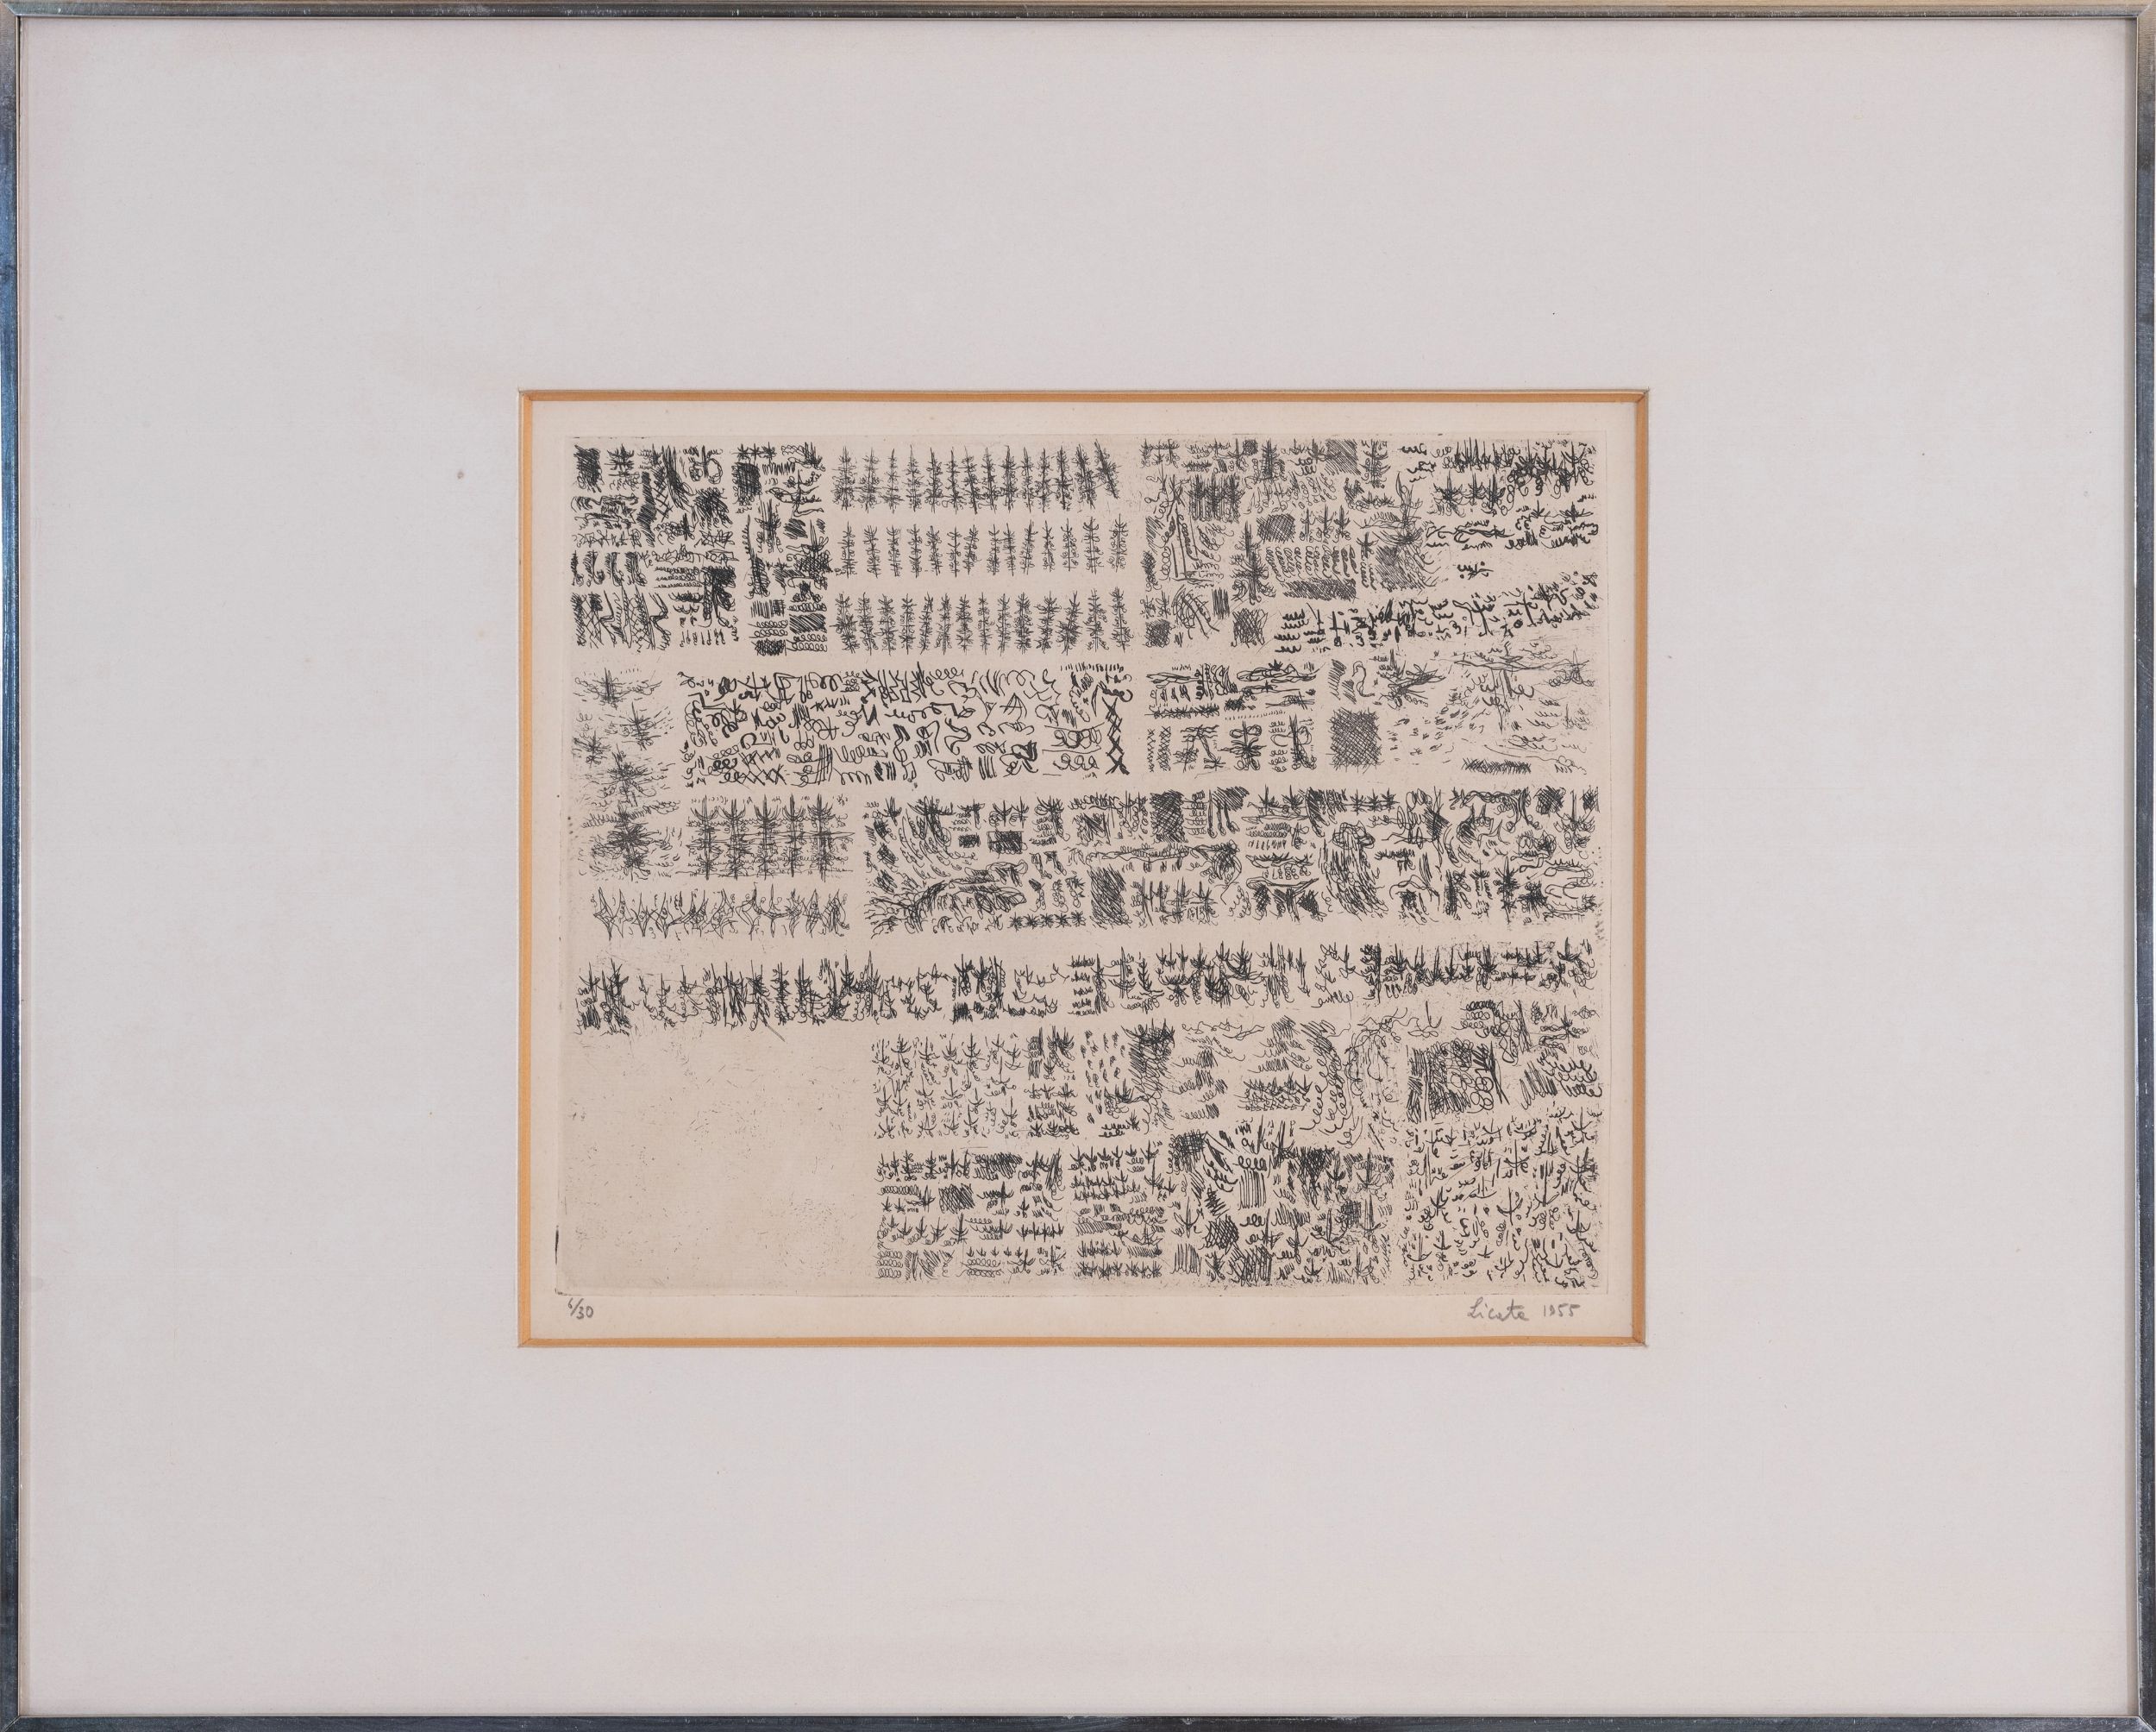 6/30
Licata 1955